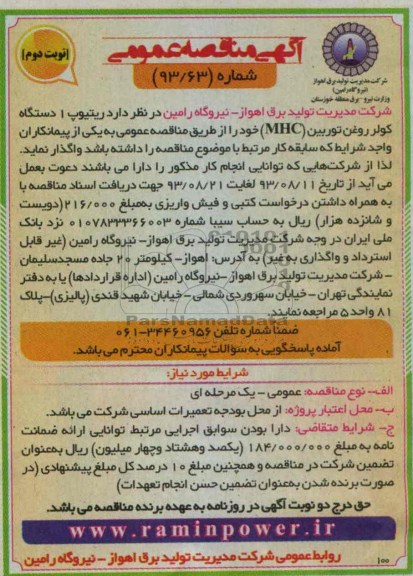 آگهی مناقصه عمومی
(نوبت دوم)
شماره (۹۳/۶۳)
شرکت مدیریت تولید برق اهواز
(نیروگاه رامین)
وزارت نیرو - برق منطقه خوزستان
شرکت مدیریت تولید برق اهواز- نیروگاه رامین در نظر دارد ریتیوپ ۱ دستگاه
کولر روغن توربین (MHC) خود را از طریق مناقصه عمومی به یکی از پیمانکاران
واجد شرایط که سابقه کار مرتبط با موضوع مناقصه را داشته باشد واگذار نماید.
لذا از شرکت‌هایی که توانایی انجام کار مذکور را دارا می باشند دعوت بعمل
می آید از تاریخ ۹۳/۰۸/۱۱ لغایت ۹۳/۰۸/۲۱ جهت دریافت اسناد مناقصه با
به همراه داشتن درخواست کتبی و فیش واریزی به‌مبلغ ۲۱۶/۰۰۰(دویست
و شانزده هزار) ریال به حساب سیبا شماره ۰۱۰۷۸۳۳۳۶۶۰۰۳ نزد بانک
ملی ایران در وجه شرکت مدیریت تولید برق اهواز- نیروگاه رامین (غیر قابل
استرداد و واگذاری به غیر) به آدرس: اهواز- کیلومتر ۲۰ جاده مسجدسلیمان
- شرکت مدیریت تولید برق اهواز -نیروگاه رامین (اداره قراردادها) یا به دفتر
نمایندگی تهران - خیابان سهروردی شمالی - خیابان شهید قندی (پالیزی)-پلاک
۸۱ واحد ۵ مراجعه نمایند.
ParsNamadData
ضمنا شماره تلفن ۳۴۴۶۰۹۵۶-۰۶۱
آماده پاسخگویی به سؤالات پیمانکاران محترم می باشد.
شرایط مورد نیاز:
الف- نوع مناقصه: عمومی - یک مرحله ای
ب- محل اعتبار پروژه: از محل بودجه تعمیرات اساسی شرکت می باشد.
ج- شرایط متقاضی: دارا بودن سوابق اجرایی مرتبط توانایی ارائه ضمانت
نامه به مبلغ ۱۸۴/۰۰۰/۰۰۰ (یکصد وهشتاد وچهار میلیون) ریال به‌عنوان
تضمین شرکت در مناقصه و همچنین مبلغ ۱۰ درصد کل مبلغ پیشنهادی (در
صورت برنده شدن به‌عنوان تضمین حسن انجام تعهدات)
حق درج دو نوبت آگهی در روزنامه به عهده برنده مناقصه می باشد.
www.raminpower.ir
روابط عمومی شرکت مدیریت تولید برق اهواز - نیروگاه رامین
۱۰۰